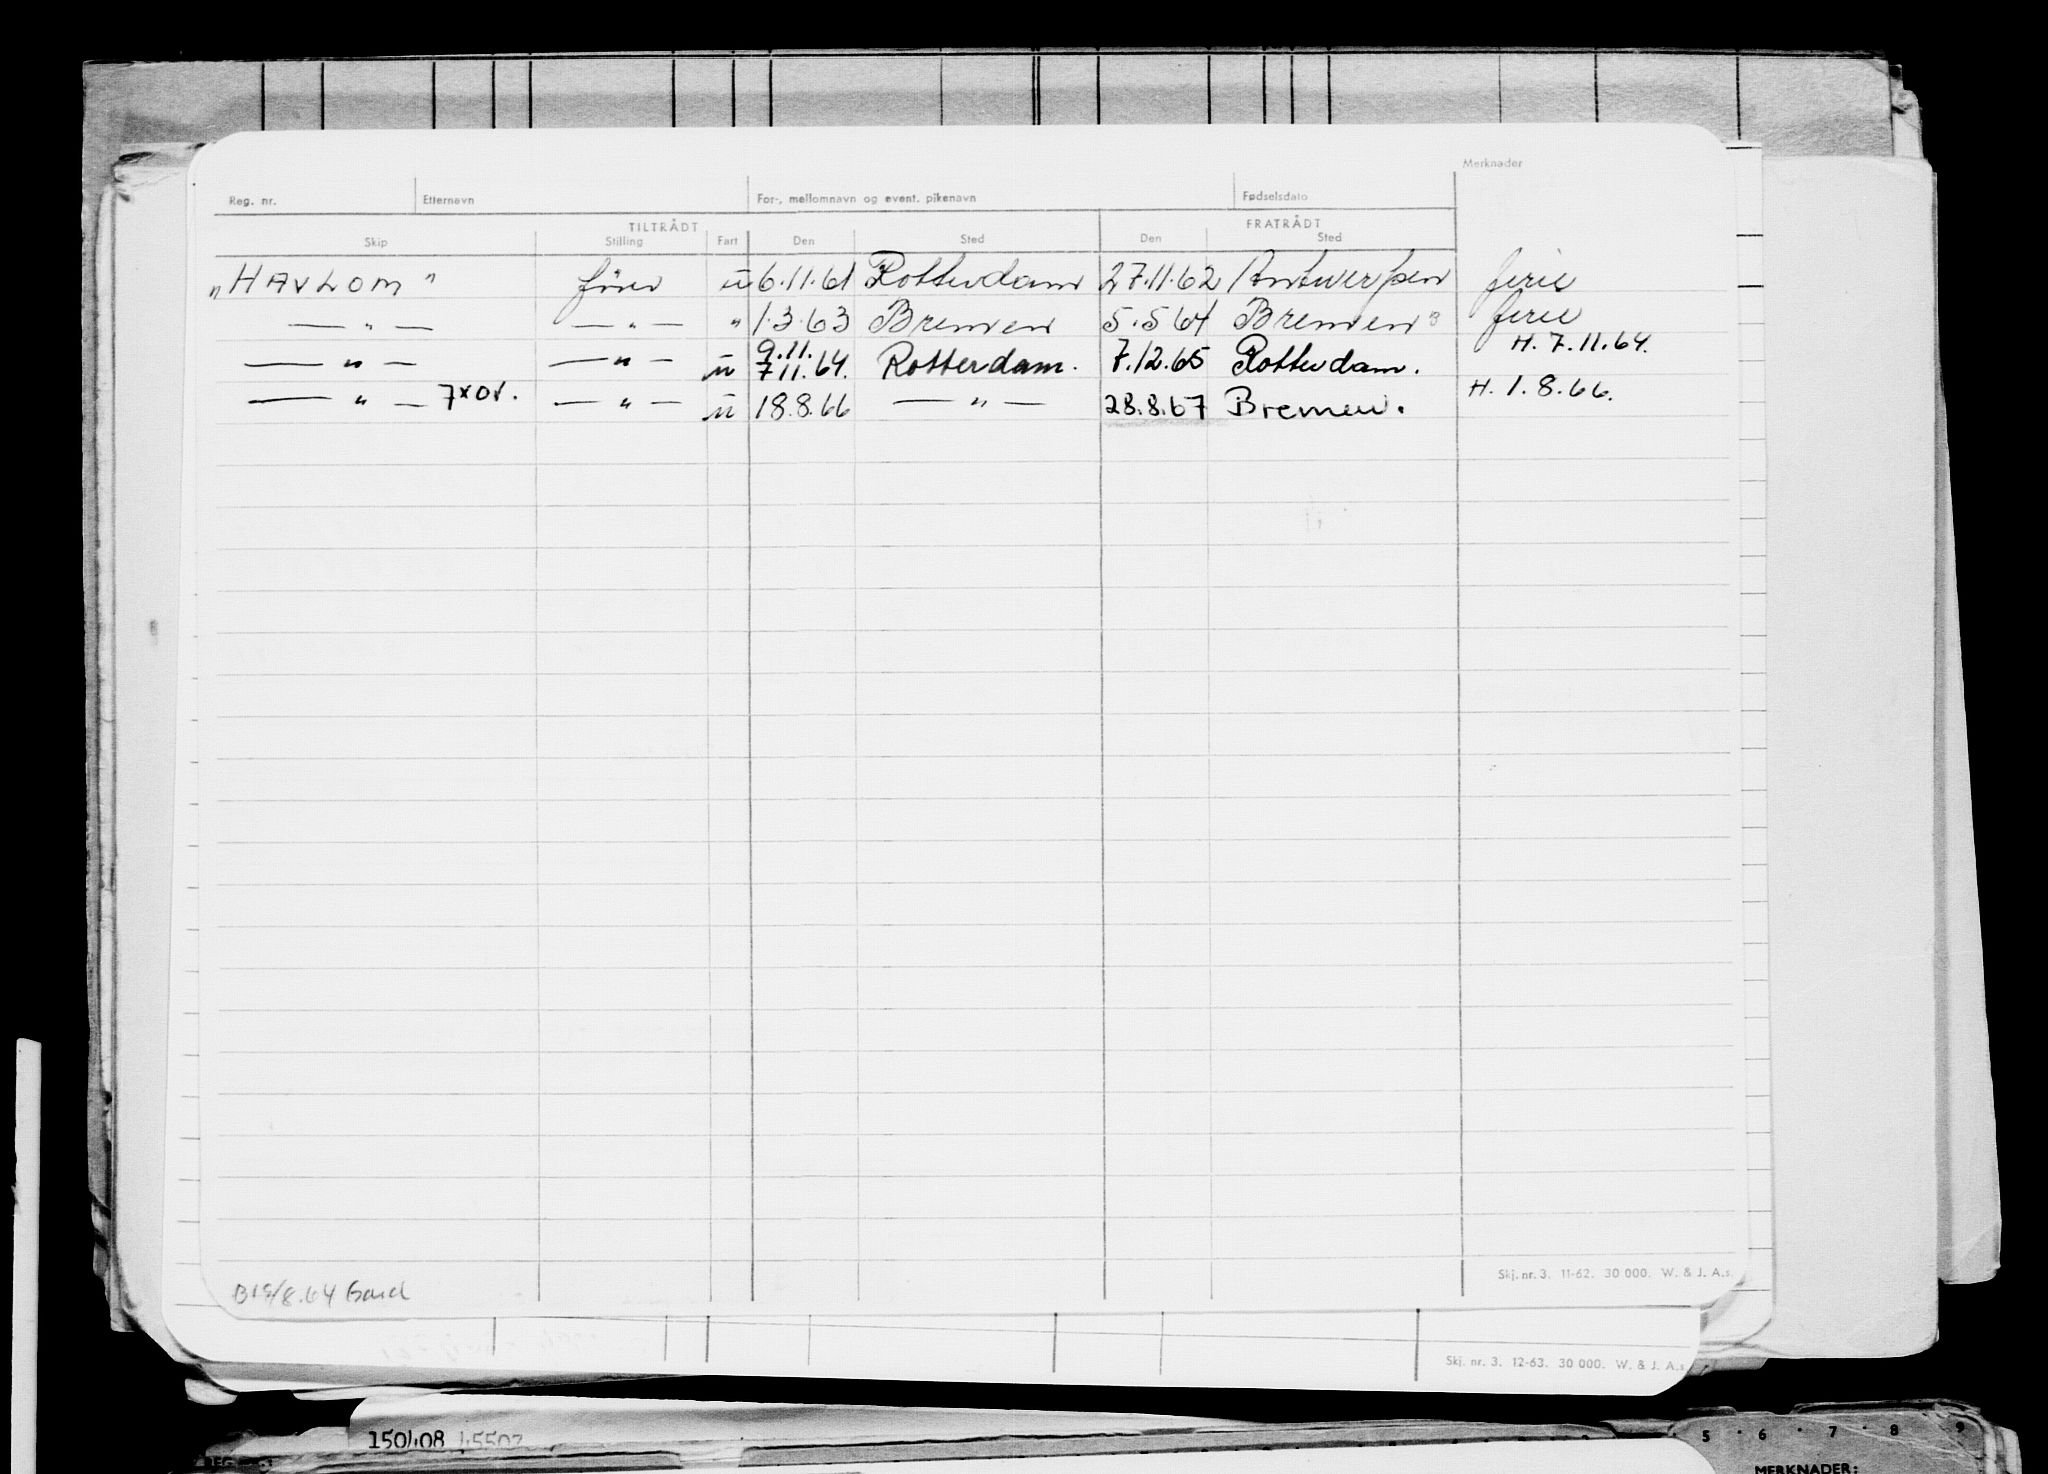 Merknader
Reg. nr. Etternavn For-, mellomnavn og event. pikenavn Fødselsdato
TILTRÅDT FRATRÅDT
Skip Stilling Fart Den Sted Den Sted
"HAVLOM" förer u 6.11.61 Rotterdam 27.11.62 Antwerpen ferie
— " — — " — " 1.3.63 Bremen 5.5.64 Bremen ferie
— " — — " — u 9.11. 7.11.64. Rotterdam. 7.12.65 Rotterdam. H. 7.11.64.
— " — 7xOV. — " — u 18.8.66 — " — 28.8.67 Bremen. H. 1.8.66.
Skj. nr. 3. 11-62. 30 000. W. & J. A.s.
Skj. nr. 3. 12-63. 30 000. W. & J. A.s.
5 · 6 · 7 · 8 9
MERKNADER: